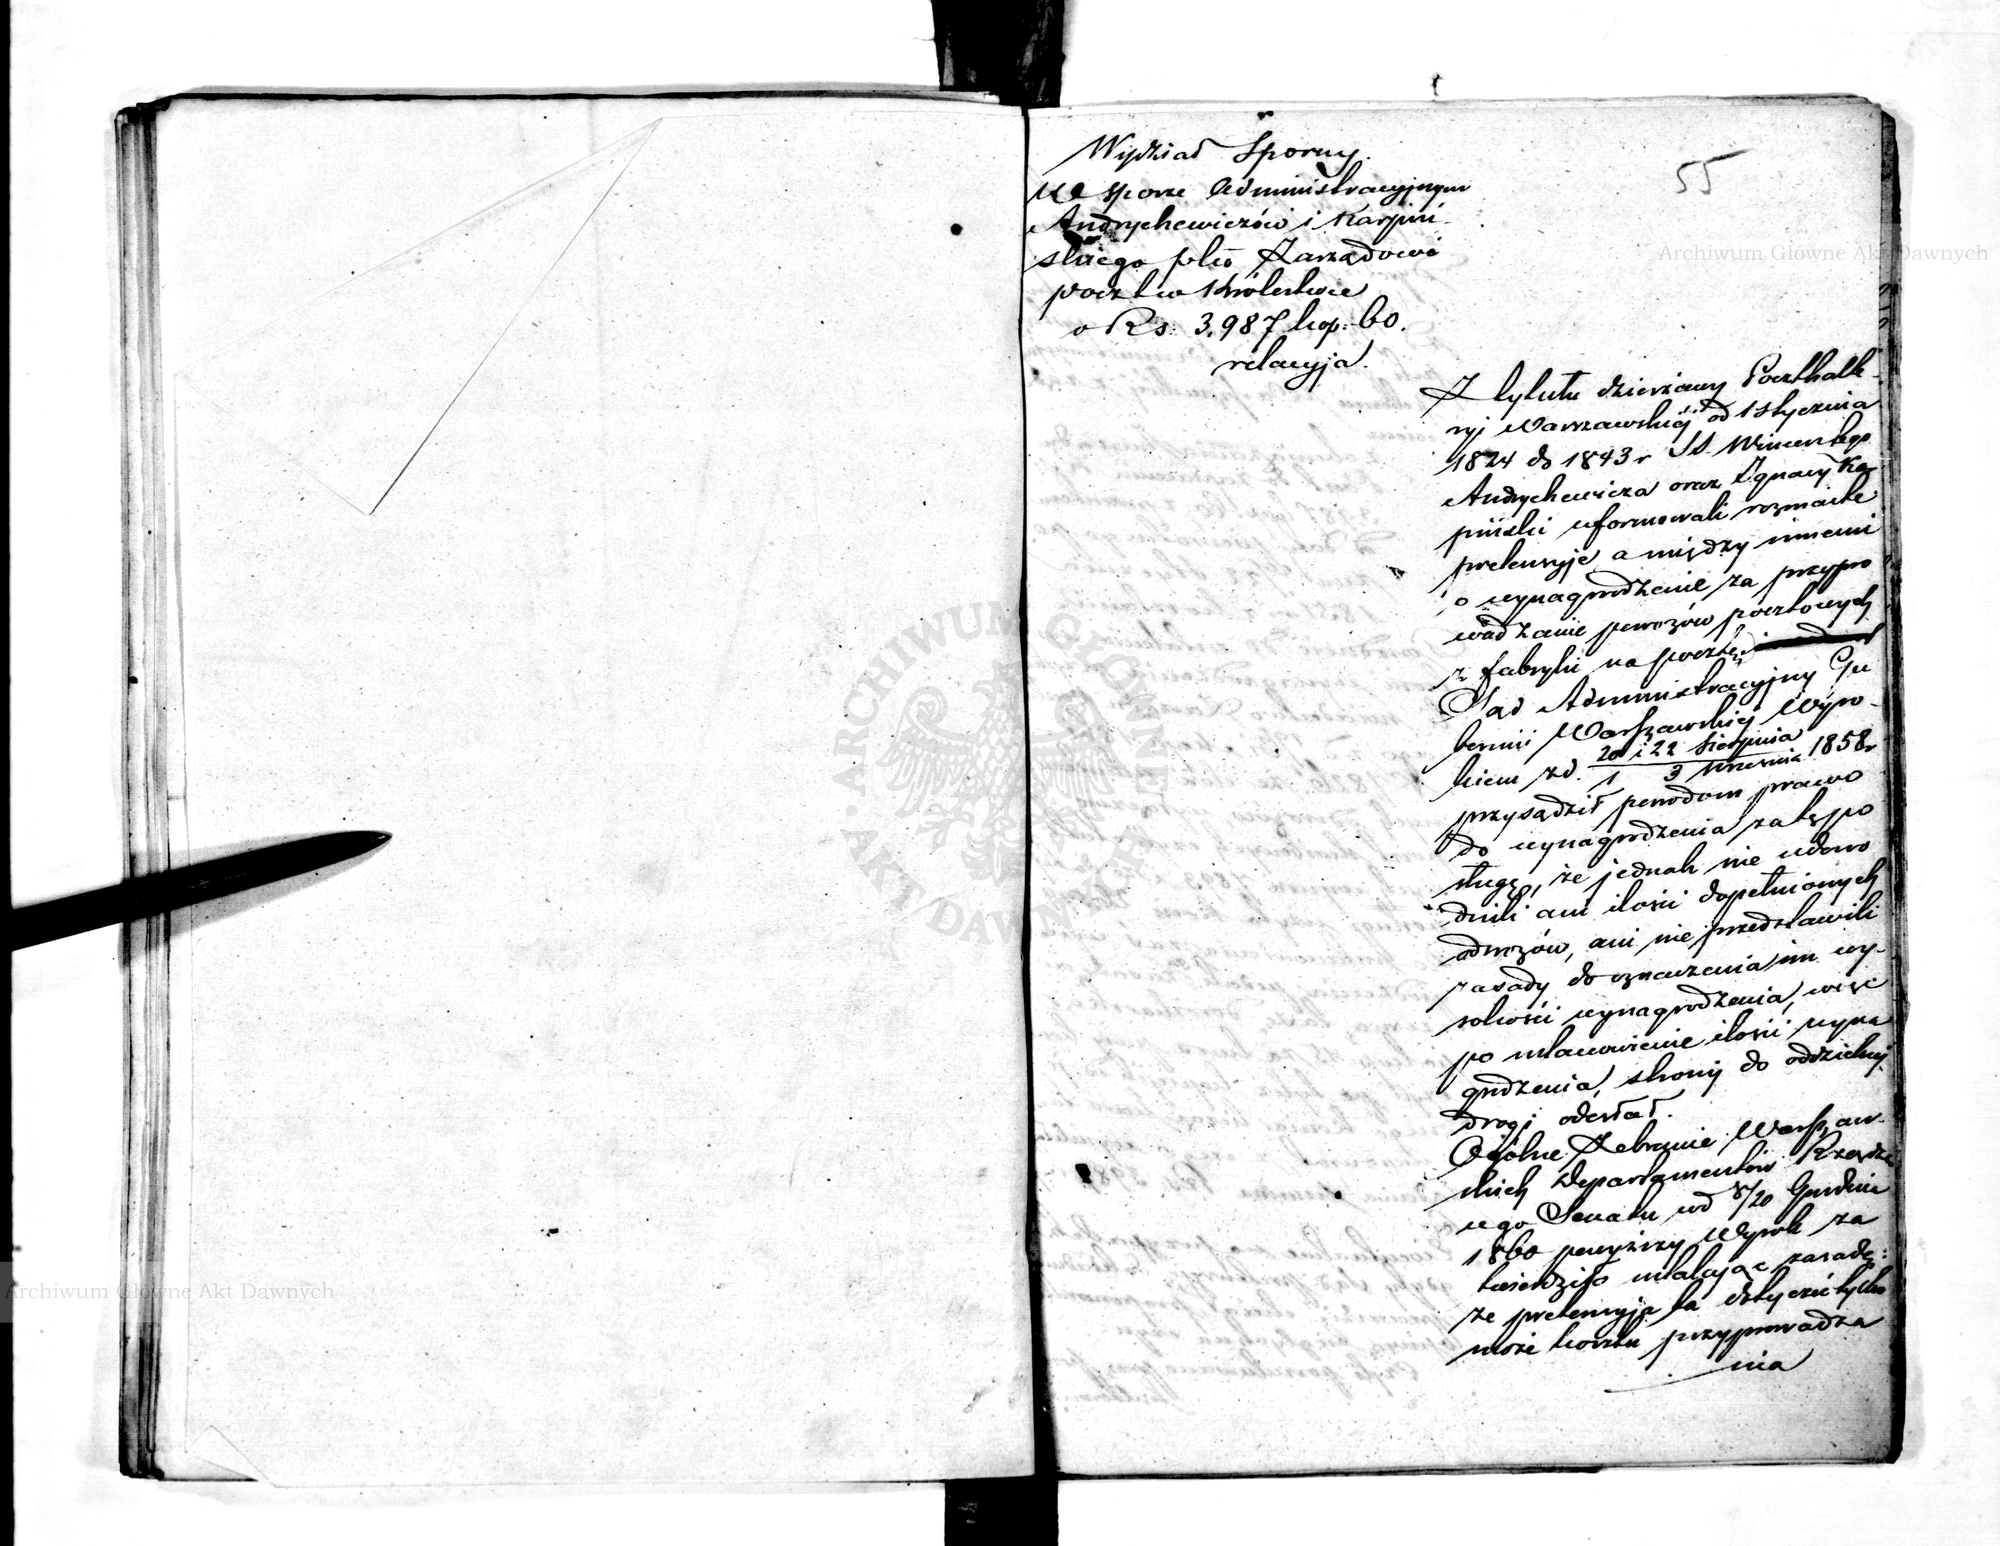 55
Wydział Sporny.
W sporze Administracyjnym
Andrychewiczów i Karpiń-
skiego pko Zarządowi
poczt w Królestwie
o Rs: 3.987 kop: 60.
relacyja.
Z tytułu dzierżawy Poczthalte-
ryi Warszawskiéj od 1 Stycznia
1824 do 1843 r SS. Wincentego
Andrychewicza oraz Ignacy Kar
piński uformowali rozmaite
pretensyje a między innemi
o wynagrodzenie za przypro
wadzanie powozów pocztowych
z fabryki na pocztę;
Sąd Administracyjny Gu
bernii Warszawskiéj Wyro-
kiem z d. 20 i 22 Sierpnia / 1 3 Września 1858 r
przysądził powodom prawo
do wynagrodzenia za tę po
sługę, że jednak nie udowo
dnili ani ilości dopełnionych
odwozów, ani nie przedstawili
zasady do oznaczenia im wy-
sokości wynagrodzenia, więc
po ustanowienie ilości wyna
grodzenia, strony do oddzielnéj
drogi odesłał.
Ogólne Zebranie Warszaw-
skich Departamentów Rządzą
cego Senatu wd 8/20 Grudnia
1860 powyższy Wyrok za
twierdziło ustalając zasadę:
że pretensyja ta dotyczeć tylko
może kosztu przyprowadza
nia
Archiwum Główne Akt Dawnych
ARCHIWUM GŁÓWNE AKT DAWNYCH
Archiwum Główne Akt Dawnych